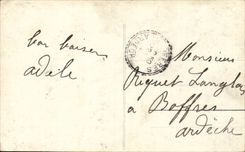 bon baiser
adèle
Monsieur
Riquet Langlois
à Boffres
ardèche